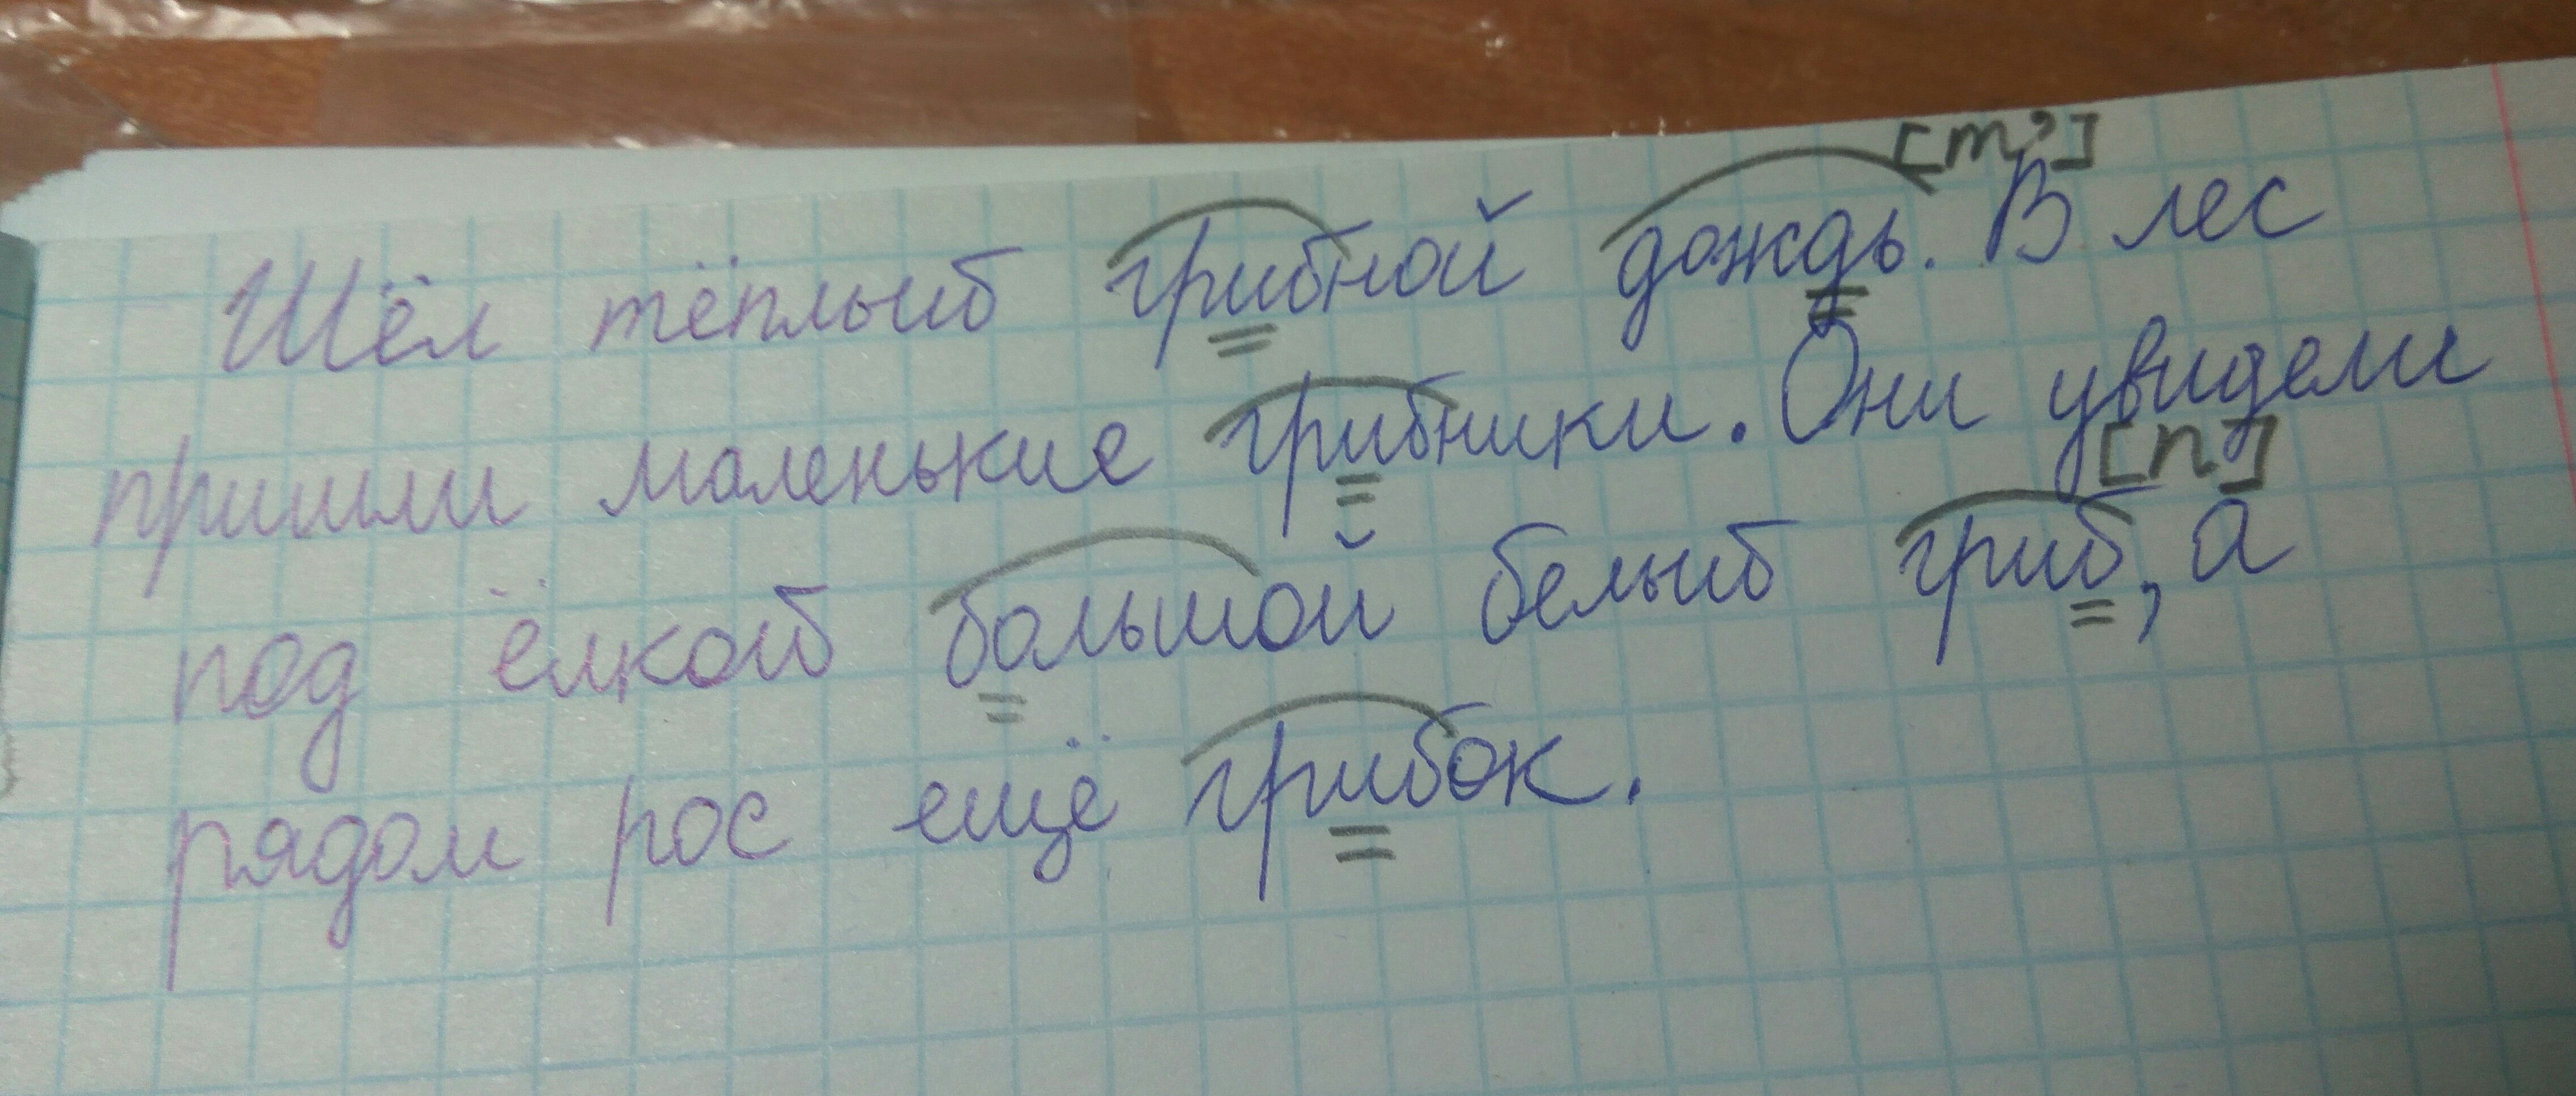 [т’]
Шёл тёплый грибной дождь. В лес
пришли маленькие грибники. Они увидели
[п]
под ёлкой большой белый гриб, а
рядом рос ещё грибок.